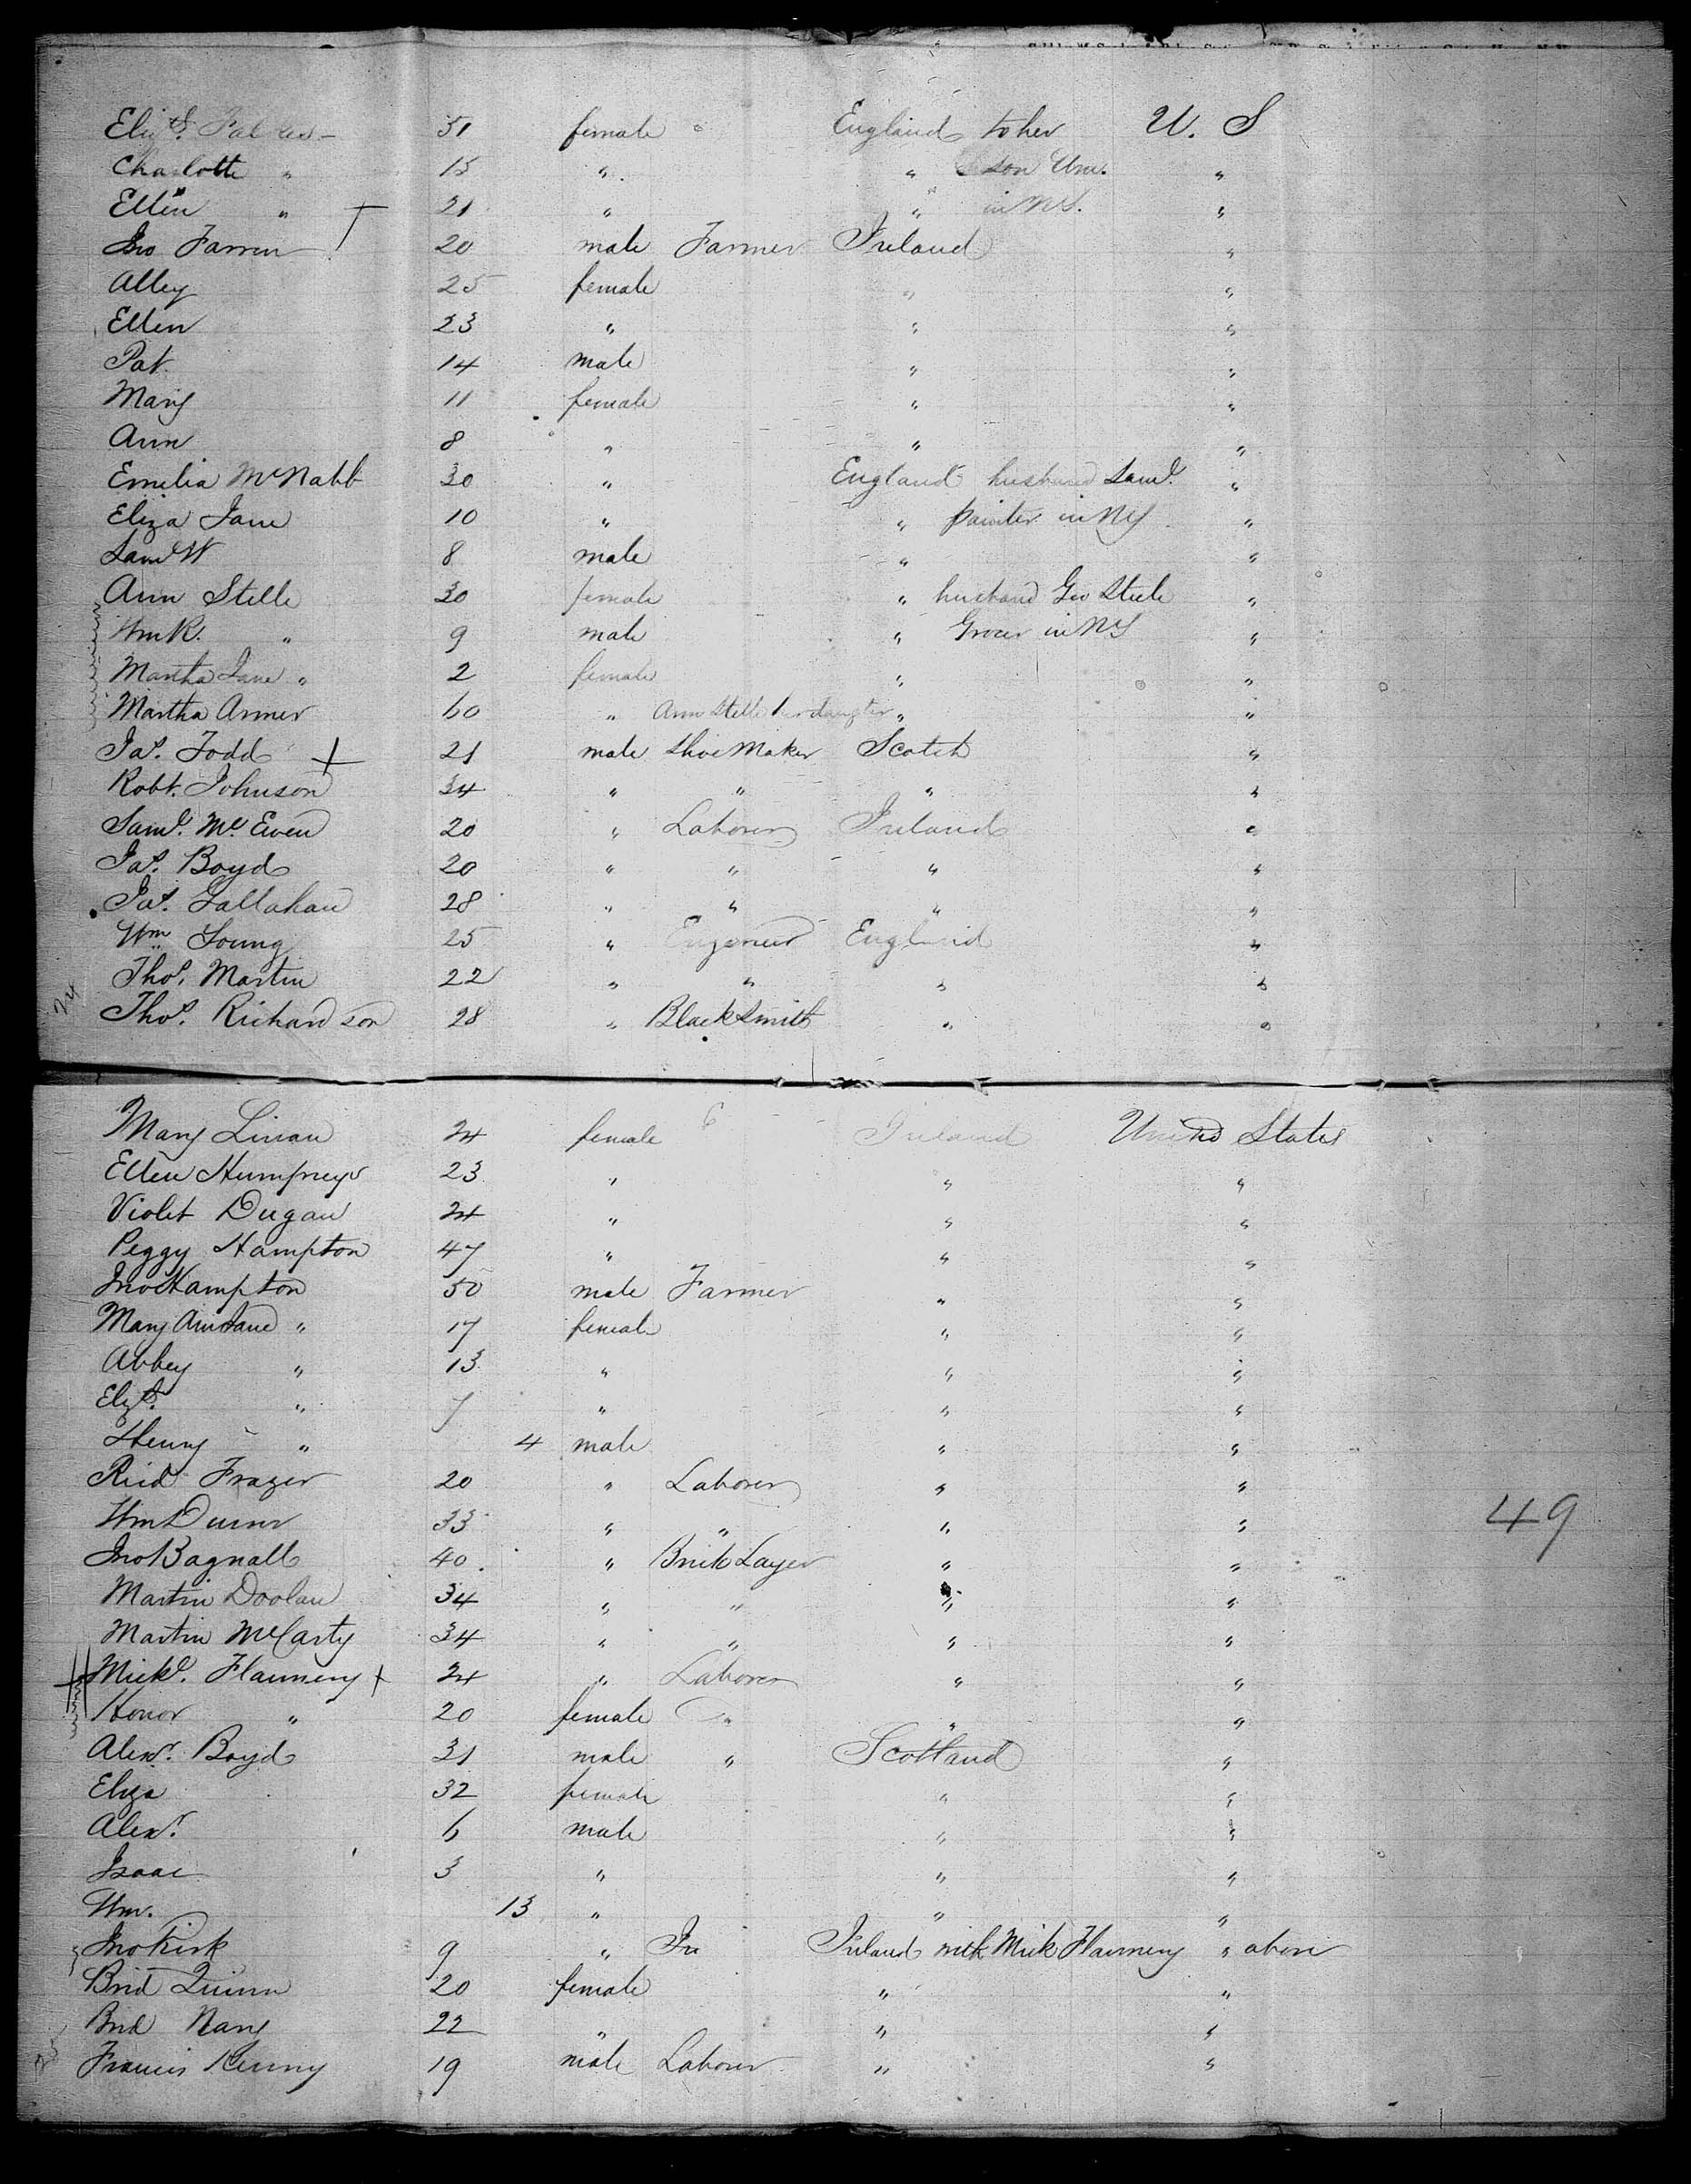 Eliz. 51 female England to her U. S
Charlotte " 15 " " son Wm. "
Ellen " 21 " " in NY. "
Jno Farren 20 male Farmer Ireland "
Alley 25 female " "
Ellen 23 " " "
Pat. 14 male " "
Mary 11 female " "
Ann 8 " " "
Emelia McNabb 30 " England husband Saml. "
Eliza Jane 10 " " painter in NY "
Saml W 8 male " "
Ann Stelle 30 female " husband Geo Steele "
Wm R. " 9 male " Grocer in NY "
Martha Jane " 2 female " "
Martha Armer 60 " Ann Stelle her daughter " "
Jas. Todd 21 male Shoe Maker Scotch "
Robt. Johnson 34 " " " "
Saml. Mc Ewen 20 " Laborer Ireland "
Jas. Boyd 20 " " " "
Jas. Gallahan 28 " " " "
Wm Young 25 " Engeneer England "
Thos. Martin 22 " " " "
24 Thos. Richardson 28 " Blacksmith " "
Mary Linan 24 female Ireland United States
Ellen Humpreys 23 " " "
Violet Dugan 24 " " "
Peggy Hampton 47 " " "
Jno Hampton 50 male Farmer " "
Mary Ann Jane " 17 female " "
Abbey " 13 " " "
Elizh. " 7 " " "
Henry " 4 male " "
Reid Frazer 20 " Laborer " "
Wm 33 " " " "
49
Jno Bagnall 40 " Brick Layer " "
Martin Doolan 34 " " " "
Martin McCarty 34 " " " "
Mickl. Flannery + 24 " Laborer " "
Honor " 20 female " " "
Alexr. Boyd 31 male " Scotland "
Eliza 32 female " "
Alexr. 6 male " "
Isaac 3 " " "
Wm. 13 " " "
Jno Kirk 9 " In Ireland with Mick Flannery " above
Brid Quinn 20 female " "
Brid Nary 22 " " "
25 Francis Kenny 19 male Laborer " "